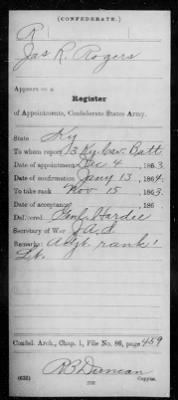 (CONFEDERATE.)
R
Jas R. Rogers
Appears on a
Register
of Appointments, Confederate States Army.
State Ky
To whom report 3 Ky Cav. Batt
Date of appointment Dec 4, 1863.
Date of confirmation Jany 13, 1864.
To take rank Nov 15, 1863.
Date of acceptance , 186 .
Delivered Genl Hardie
Secretary of War J A S
Remarks: Adjt. rank 1
Lt.
Confed. Arch., Chap. 1, File No. 86, page 459
R B Duncan
(635) Copyist.